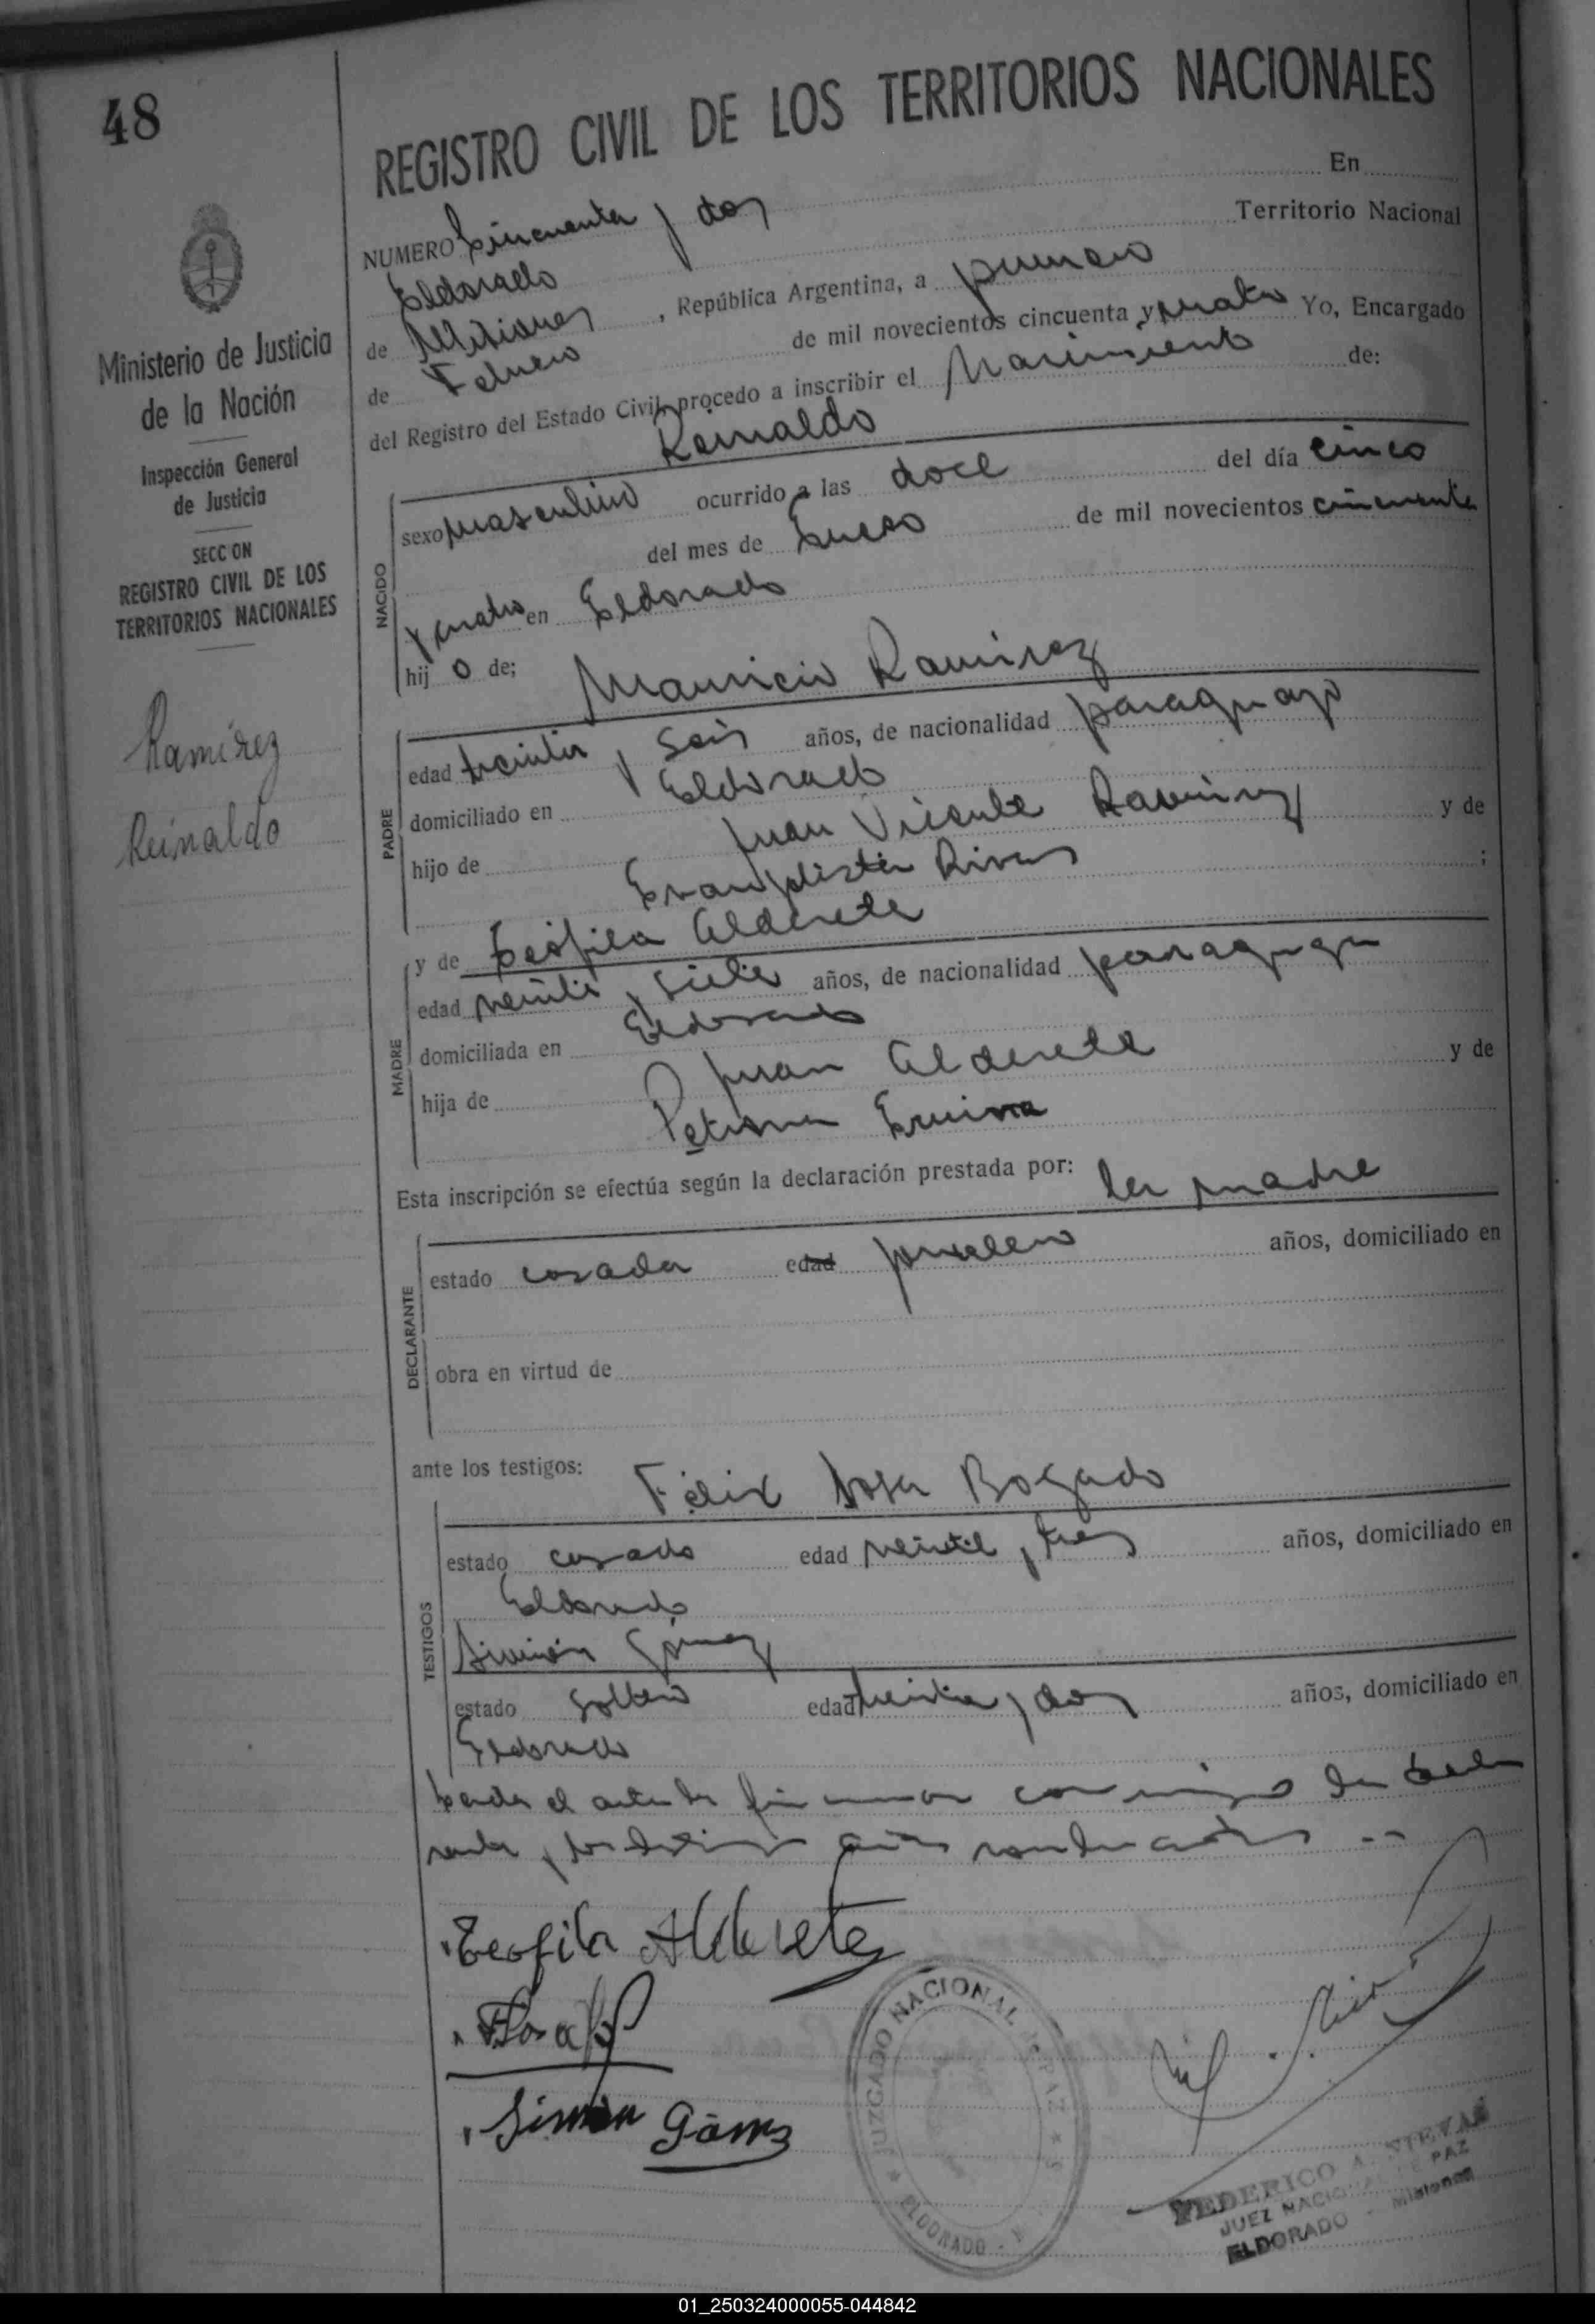 48
REGISTRO CIVIL DE LOS TERRITORIOS NACIONALES
Ministerio de Justicia
de la Nación
Inspección General
de Justicia
SECCION
REGISTRO CIVIL DE LOS
TERRITORIOS NACIONALES
Ramírez
Reinaldo
NUMERO Cincuenta y dos En
Eldorado Territorio Nacional
de Misiones, República Argentina, a primero
de Febrero de mil novecientos cincuenta y cuatro Yo, Encargado
del Registro del Estado Civil, procedo a inscribir el Nacimiento de:
Reinaldo
NACIDO
sexo masculino ocurrido a las doce del día cinco
del mes de Enero de mil novecientos cincuenta
y cuatro en Eldorado
hij o de; Mauricio Ramírez
PADRE
edad treinta y seis años, de nacionalidad paraguayo
domiciliado en Eldorado
hijo de Juan Vicente Ramírez y de
Evangelista Rivas ;
y de Teófila Alderete
MADRE
edad veinte y siete años, de nacionalidad paraguaya
domiciliada en Eldorado
hija de Juan Alderete y de
Petrona
Esta inscripción se efectúa según la declaración prestada por: la madre
DECLARANTE
estado casada edad años, domiciliado en
obra en virtud de
ante los testigos: Félix Sosa Bogado
TESTIGOS
estado casado edad veinte y tres años, domiciliado en
Eldorado
Simón Gómez
estado soltero edad treinta y dos años, domiciliado en
Eldorado
el acta la firman conmigo la
Teofila Alderete
Simón Gómez
JUZGADO NACIONAL DE PAZ
ELDORADO
FEDERICO A.
JUEZ NACIONAL DE PAZ
ELDORADO - Misiones
01_250324000055-044842